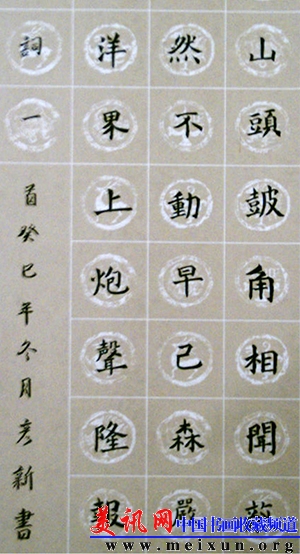 山頭鼓角相聞敵
然不動早已森嚴
洋界上炮聲隆報
詞一
首癸巳年冬月彦新書
美讯网 中国书画收藏频道
www.meixun.org